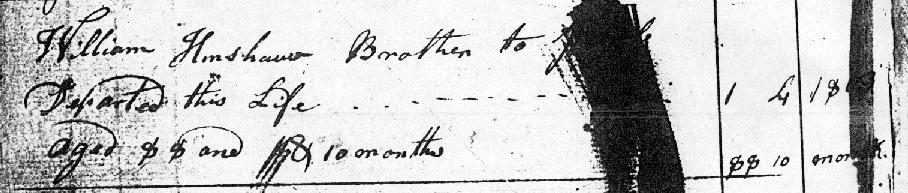 William Hinshaw Brother to
Departed this Life - - - - - - - - 1 4
aged 88 and 10 months 88 10 month